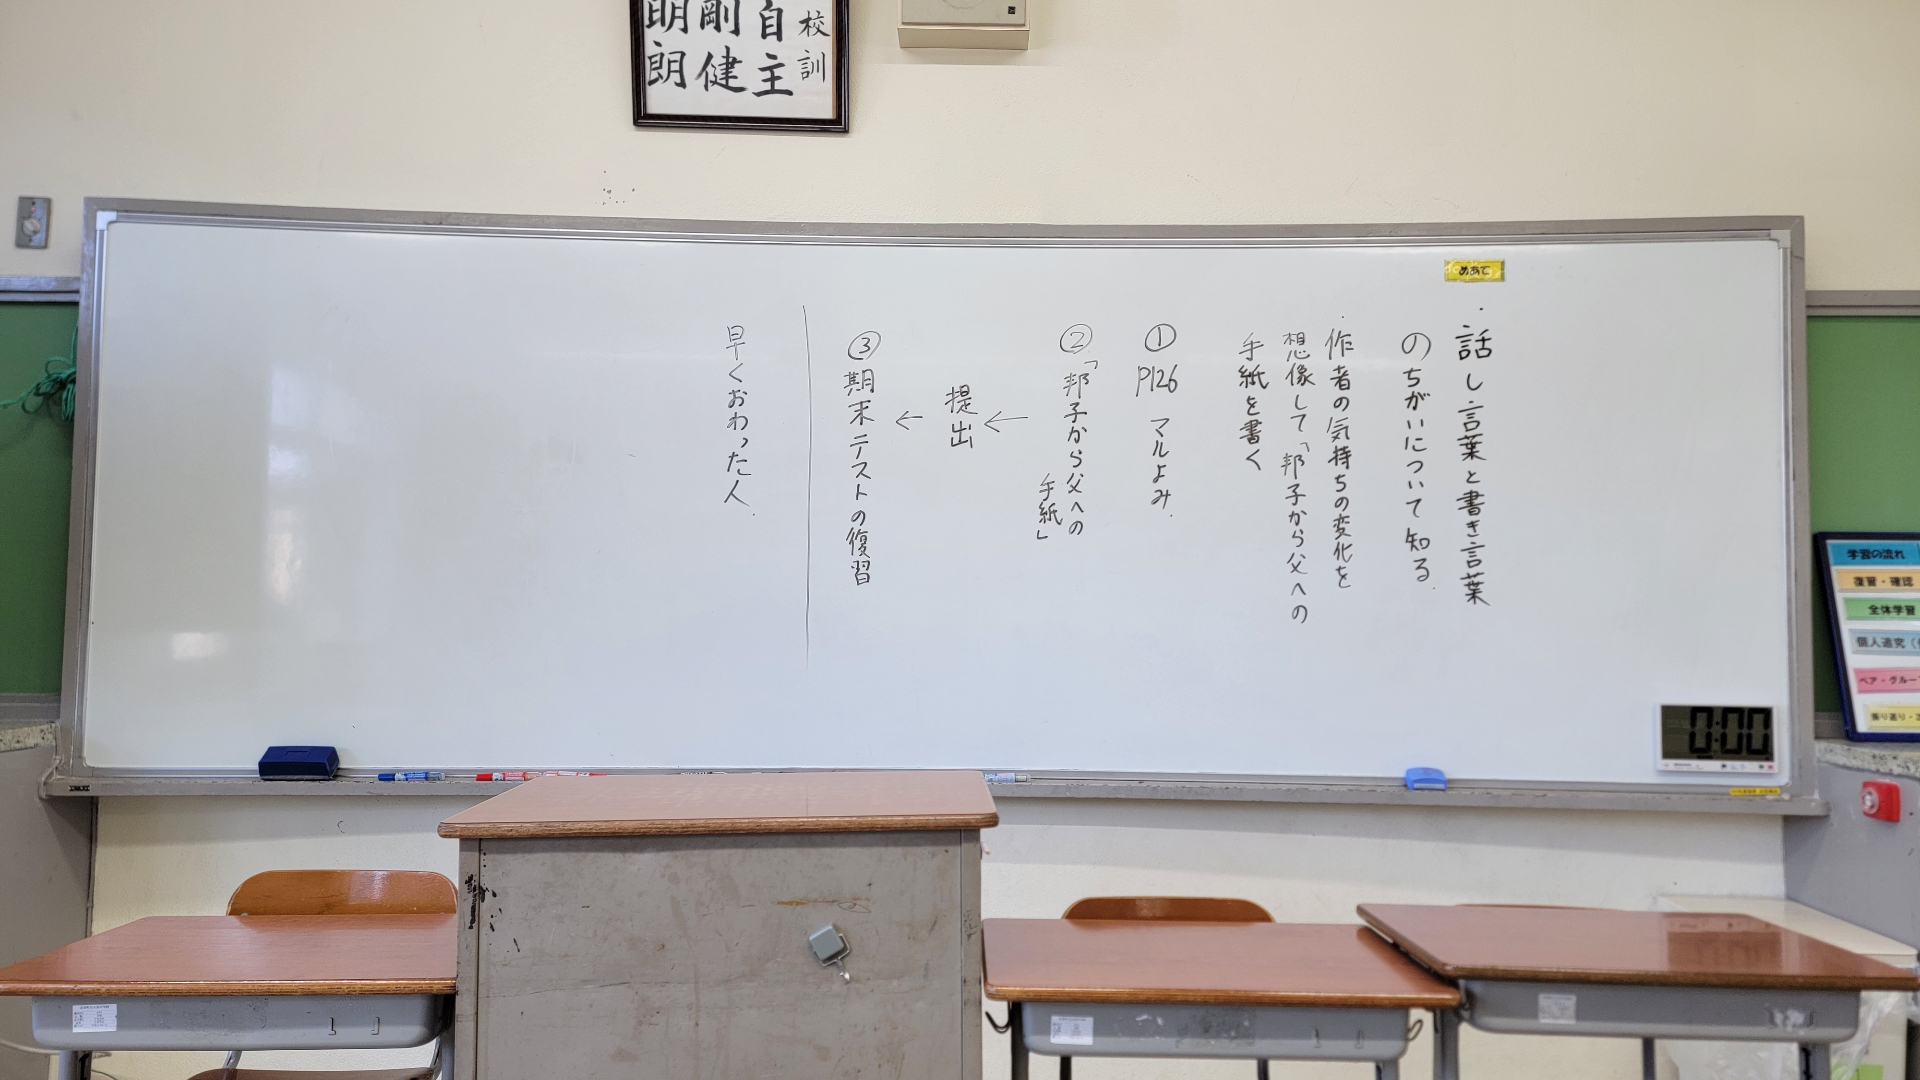 校訓
自主
剛健
明朗
めあて
・話し言葉と書き言葉
のちがいについて知る.
・作者の気持ちの変化を
想像して「邦子から父への
手紙を書く
① P126 マルよみ.
②「邦子から父への
手紙」
←
提出
←
③ 期末テストの復習
早くおわった人.
0:00
学習の流れ
復習・確認
全体学習
個人追究（
ペア・グルー
振り返り・